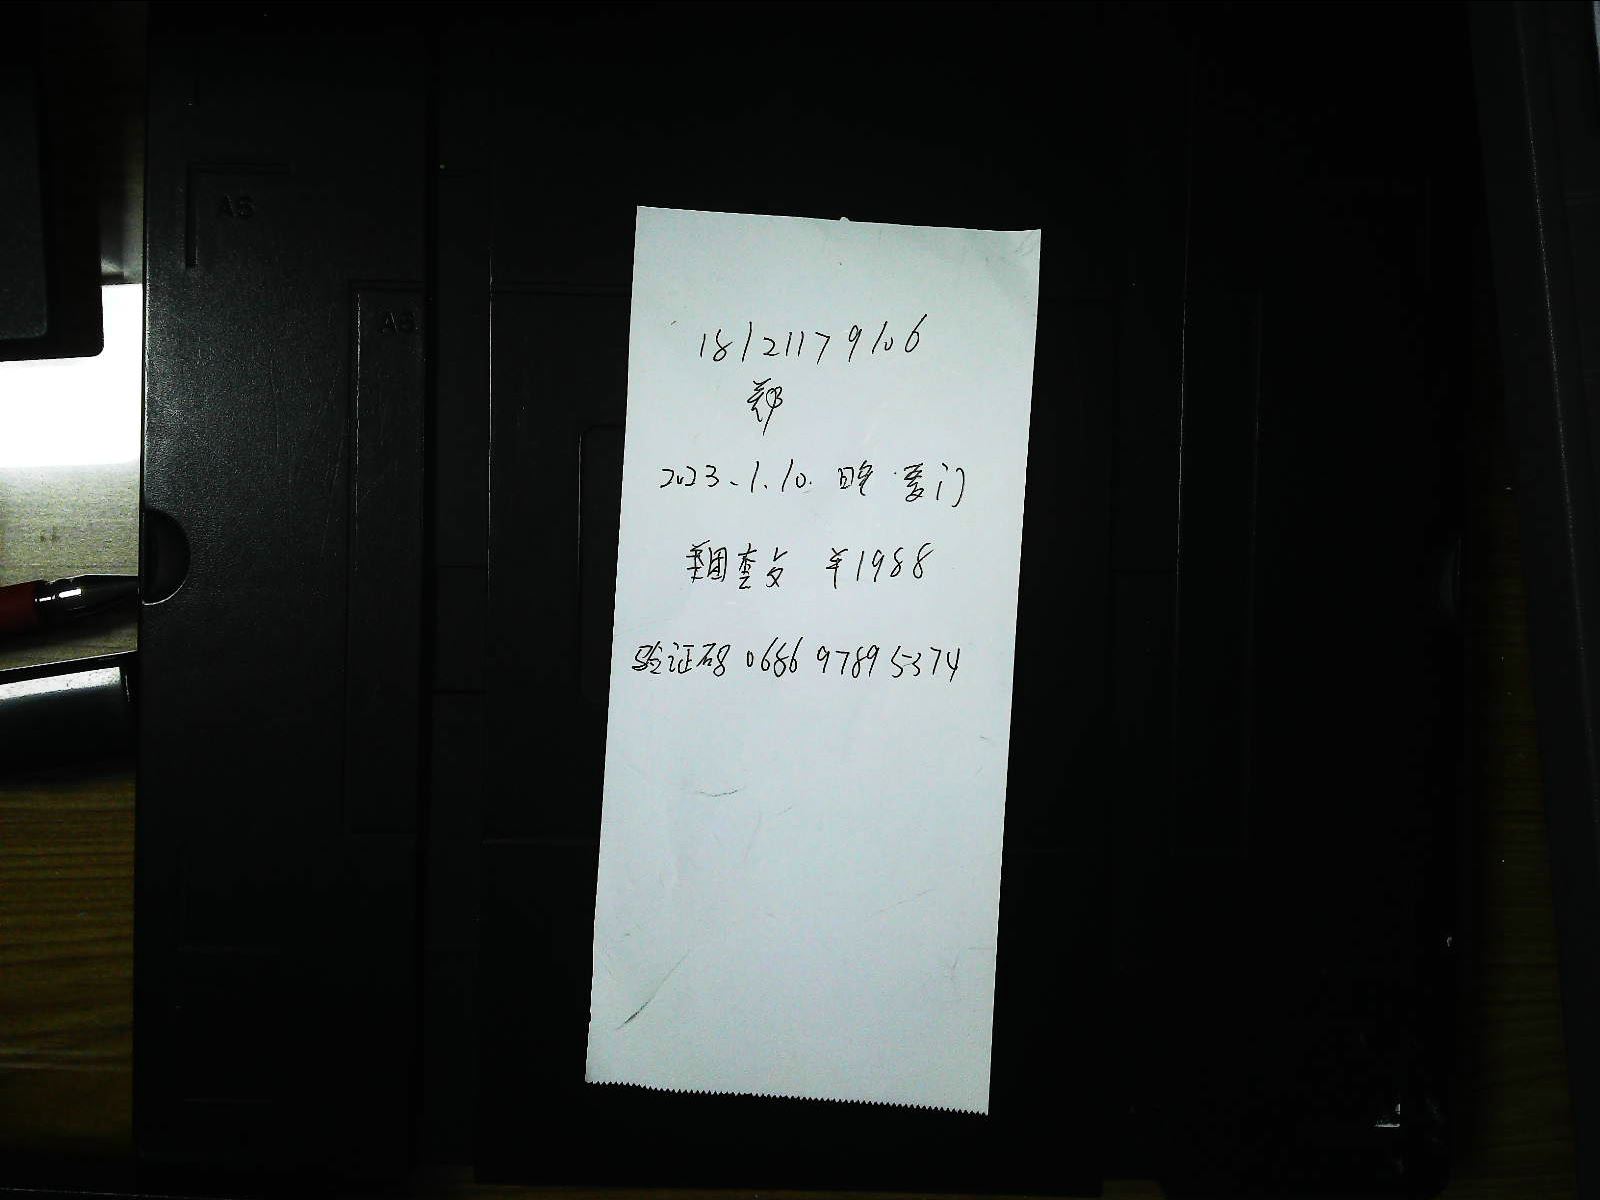 A3
A5
18121179106
郑
2023.1.10. 晚 厦门
美团套餐 ¥1988
验证码 0686 9789 5374